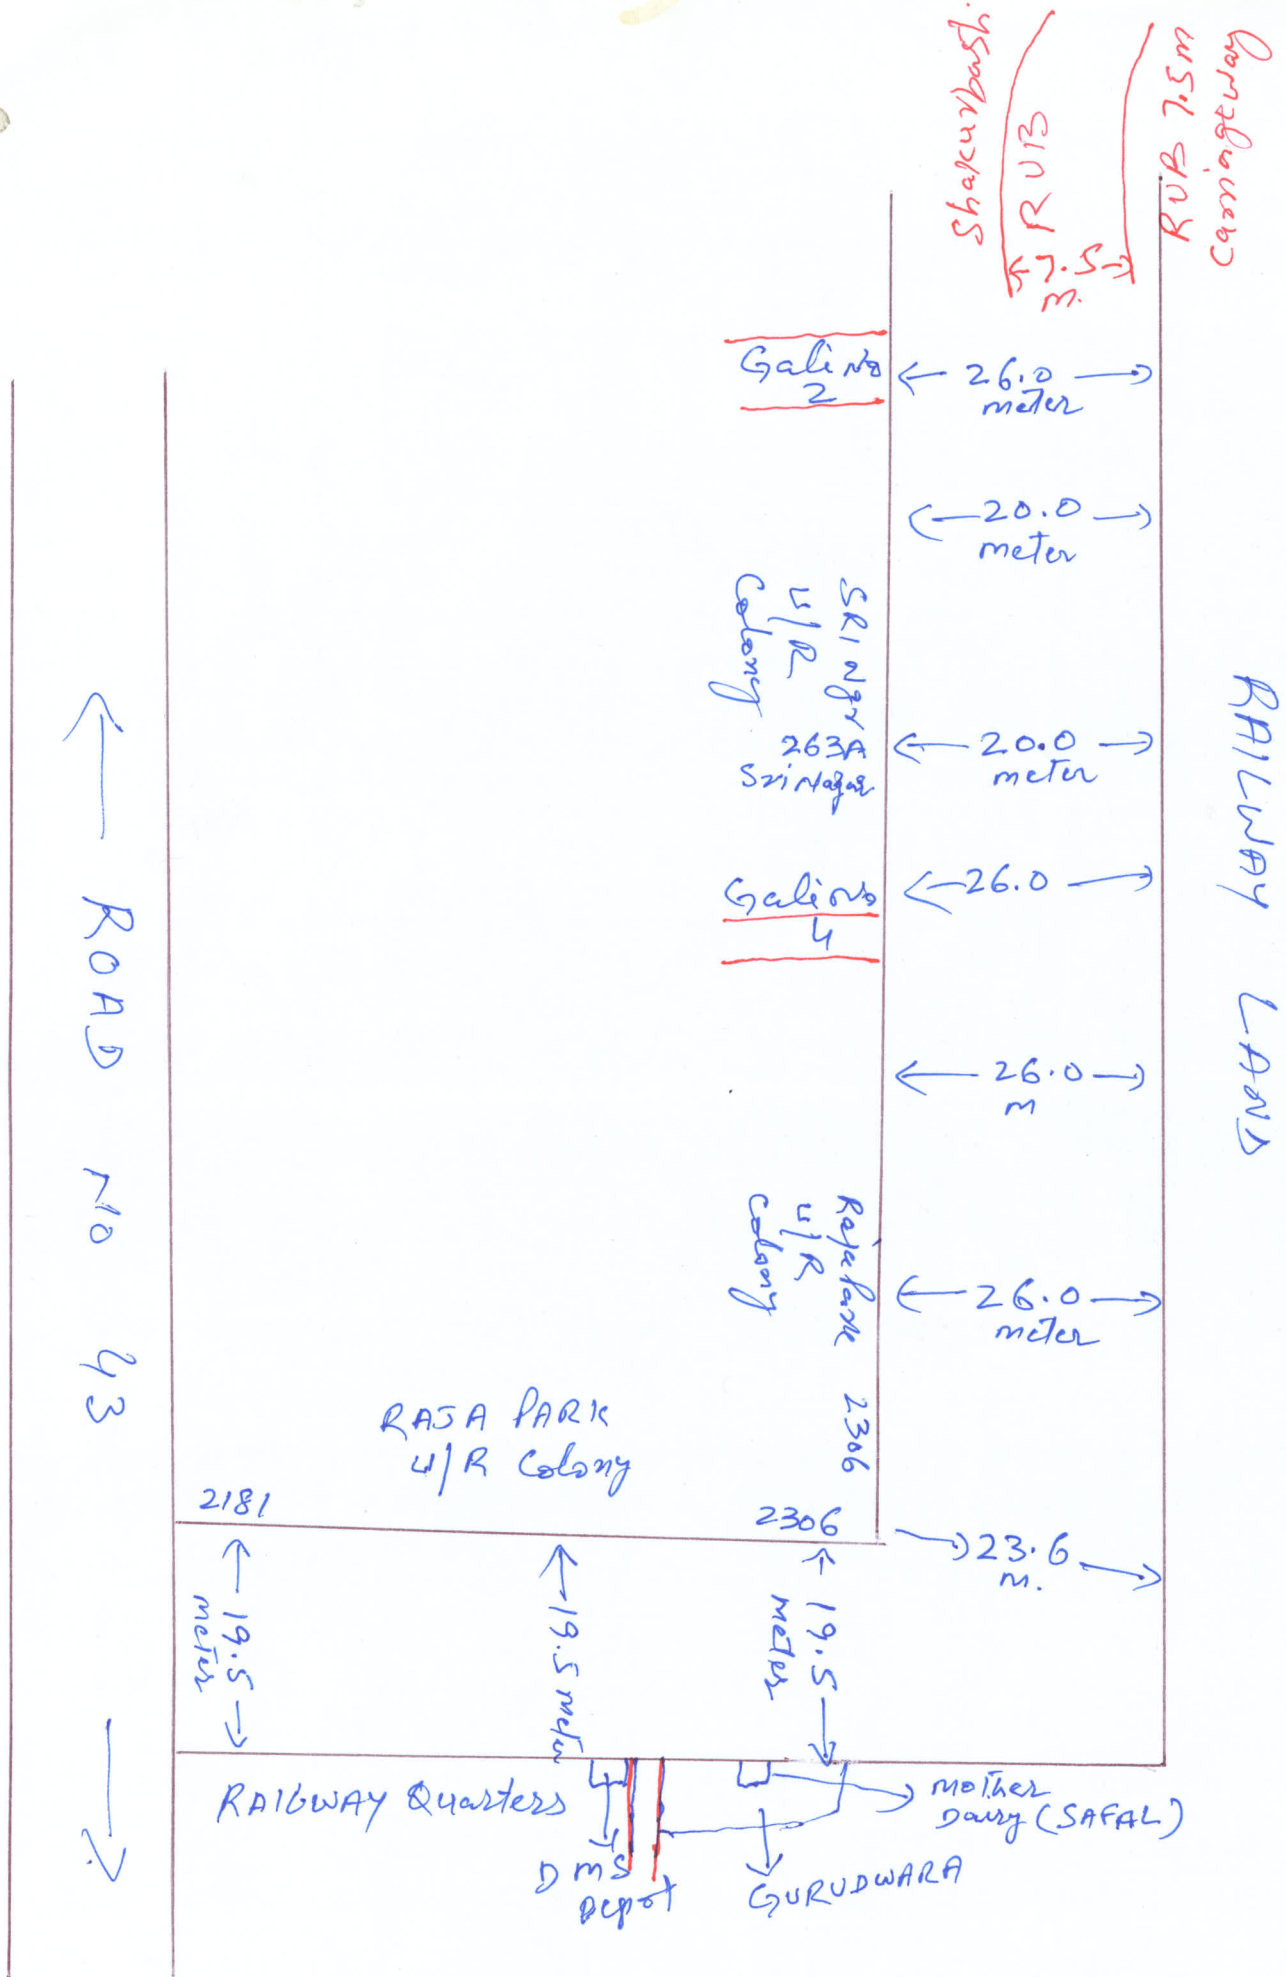 Shakurbasti
RUB
7.5
m.
RUB 7.5m
Carriageway
Gali No
2
26.0
meter
20.0
meter
SRI Ngr
U/R
Colony
263A
Sri Nagar
20.0
meter
Gali No
4
26.0
26.0
m
RAILWAY LAND
Raja Park
U/R
Colony
2306
26.0
meter
ROAD NO 43
RAJA PARK
U/R Colony
2181
2306
23.6
m.
19.5
meter
19.5 meter
19.5
meter
RAILWAY Quarters
DMS
Depot
GURUDWARA
Mother
Dairy (SAFAL)